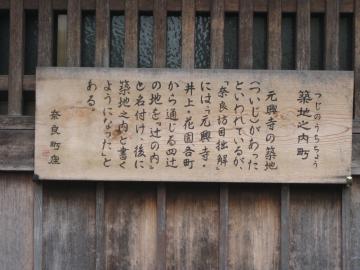 つじのうちちょう
築地之内町
元興寺の築地
(ついじ)があった
といわれているが
「奈良坊目拙解」
には、「元興寺・
井上・花園各町
から通じる四辻
の地を『辻の内』
と名付け、後に
築地之内と書く
ようになった」と
ある。
奈良町座